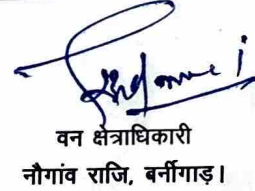 वन क्षेत्राधिकारी
नौगांव राजि, बर्नीगाड़।